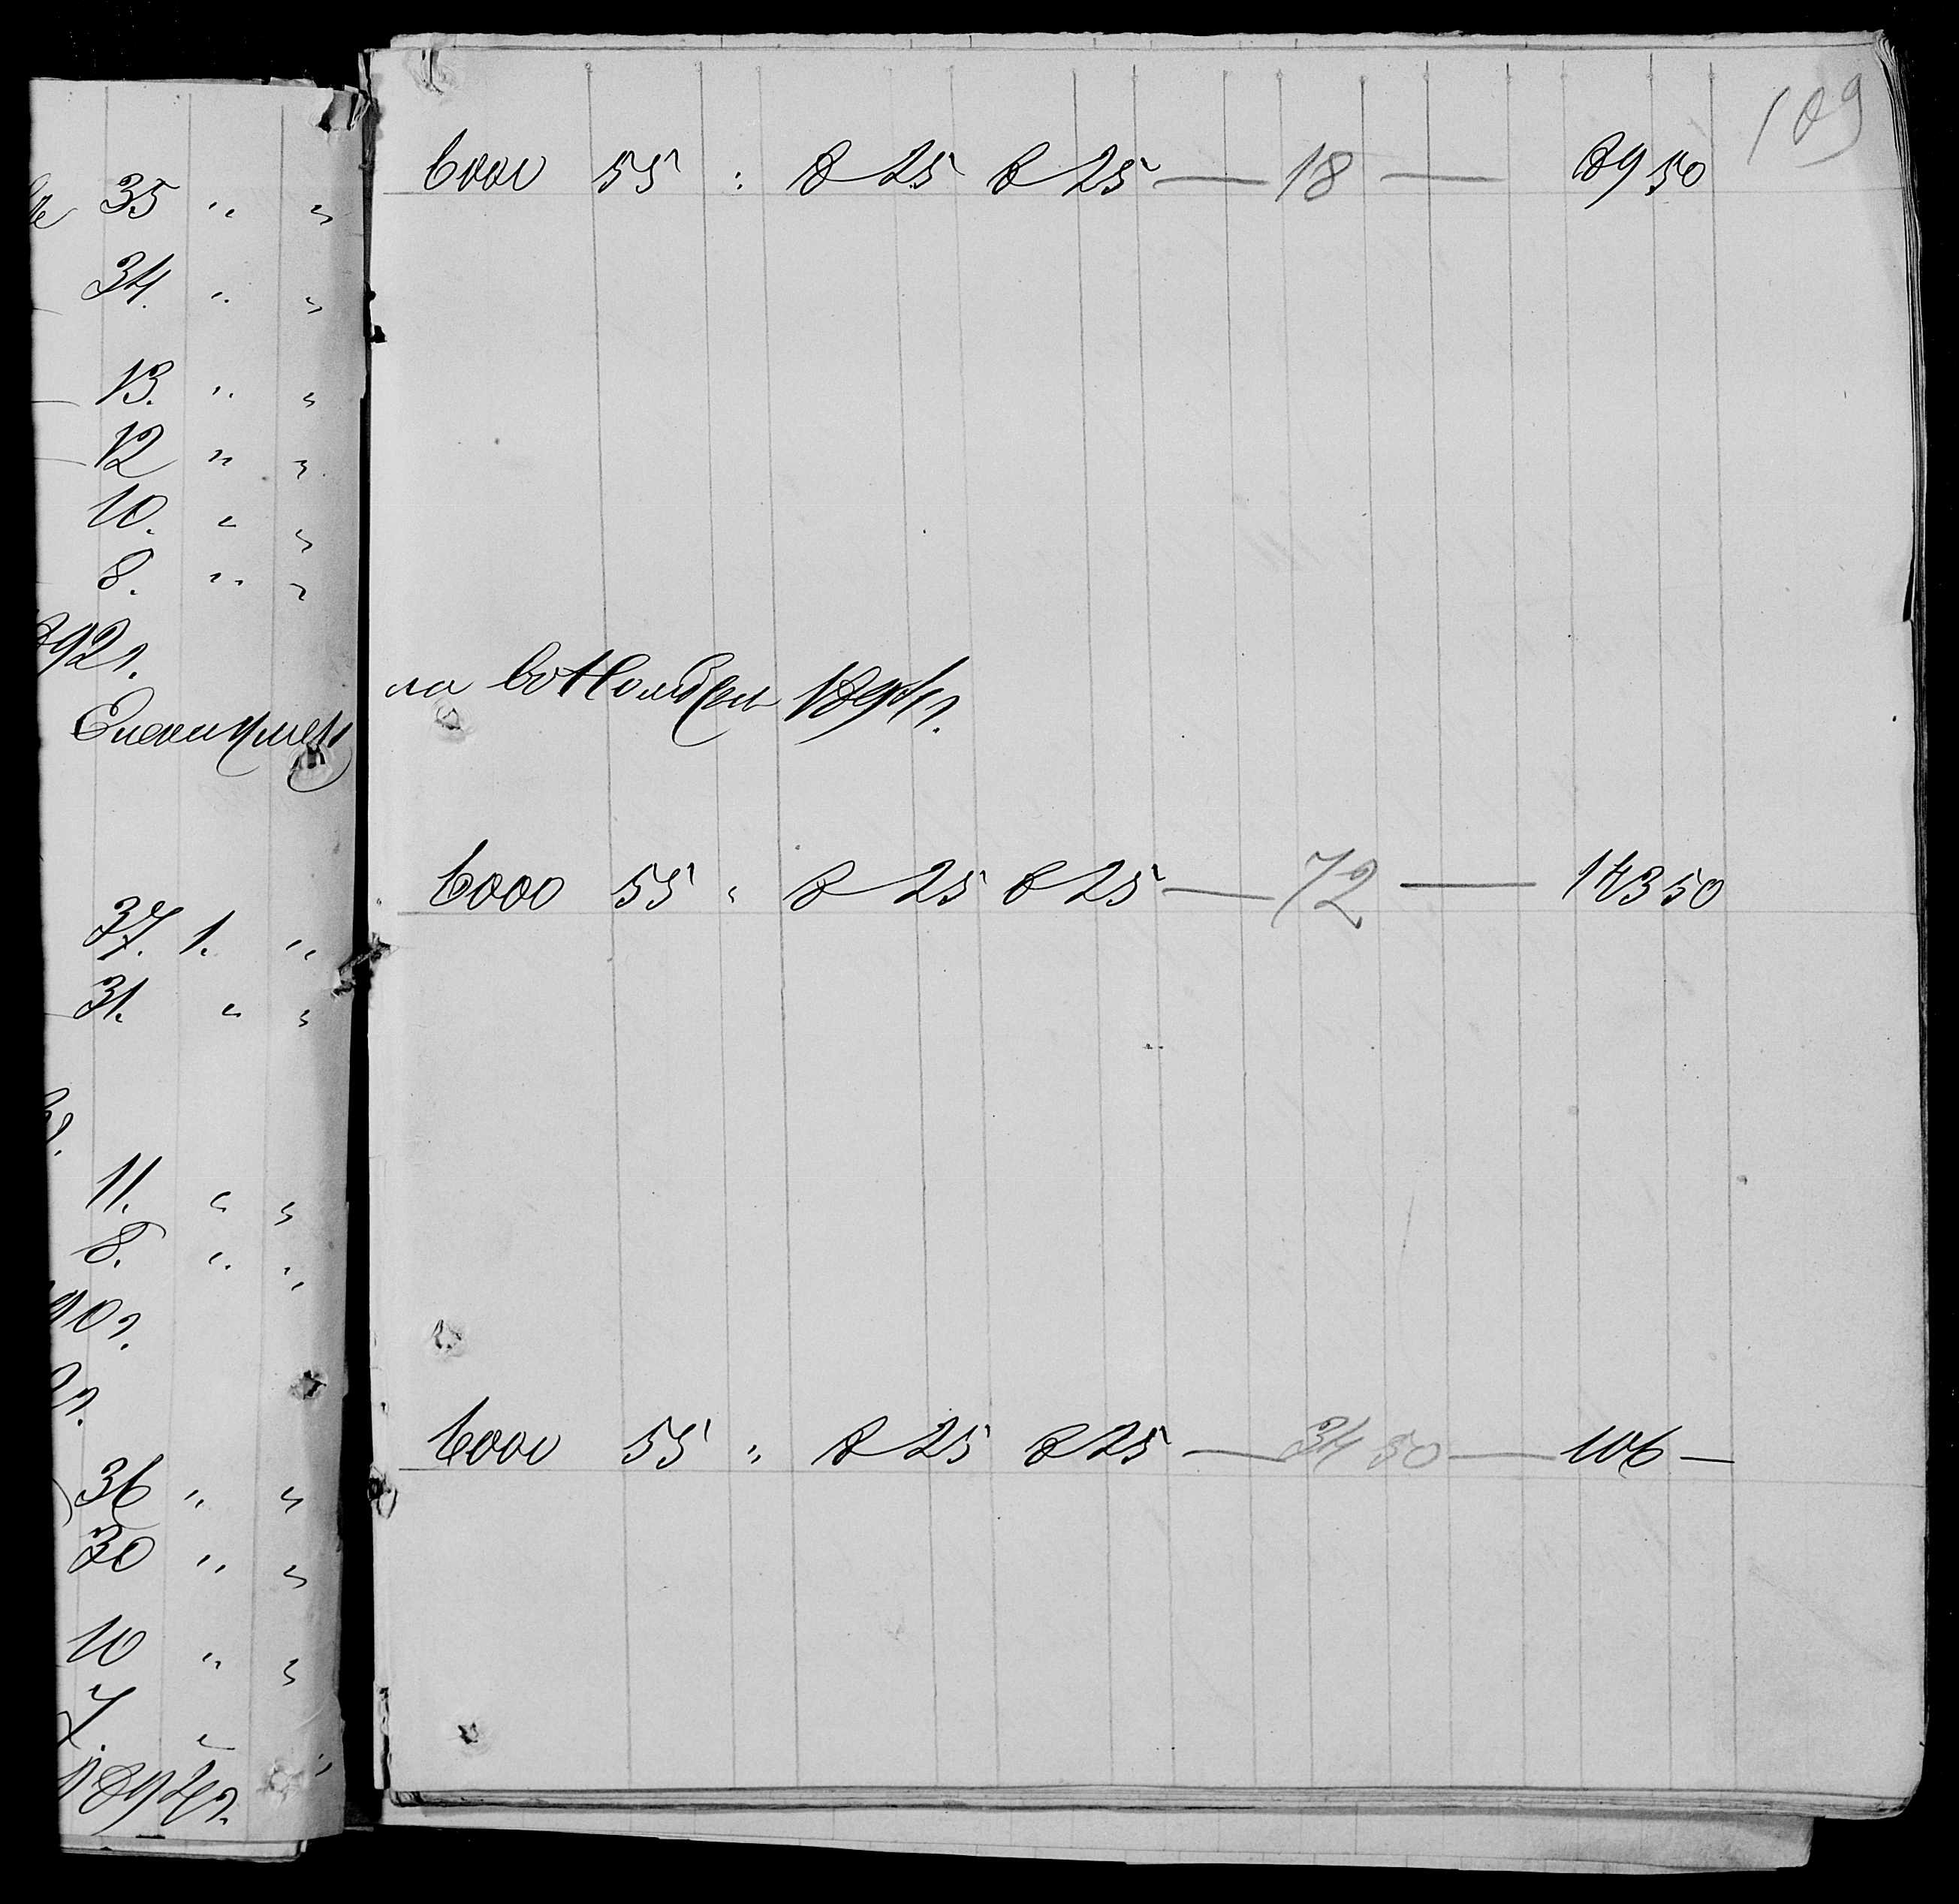 35 " "
34. " "
13. " "
12 " "
10. " "
8. " "
892 г.
37. 1. "
31. " "
11. " "
8. " "
90 г.
36 " "
30 " "
10 " "
7. "
109
6000 55 : 8 25 8 25 — 18 — 89 50
на 189
6000 55 " 8 25 8 25 — 72 — 143 50
6000 55 " 8 25 8 25 — 34 50 — 106 —